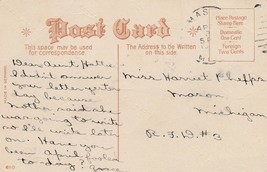 Post Card
This space may be used for correspondence
The Address to be Written on this side
Place Postage Stamp Here
Domestic One Cent
Foreign Two Cents
MAS
Dear Aunt Hattie
I didn't answer
your letter yesterday
because
Mother said she
was going to write
so I'll write later
on. Have you
been April fooled
to-day?
Miss Harriet Phepps
Mason
Michigan
R.F.D. #3